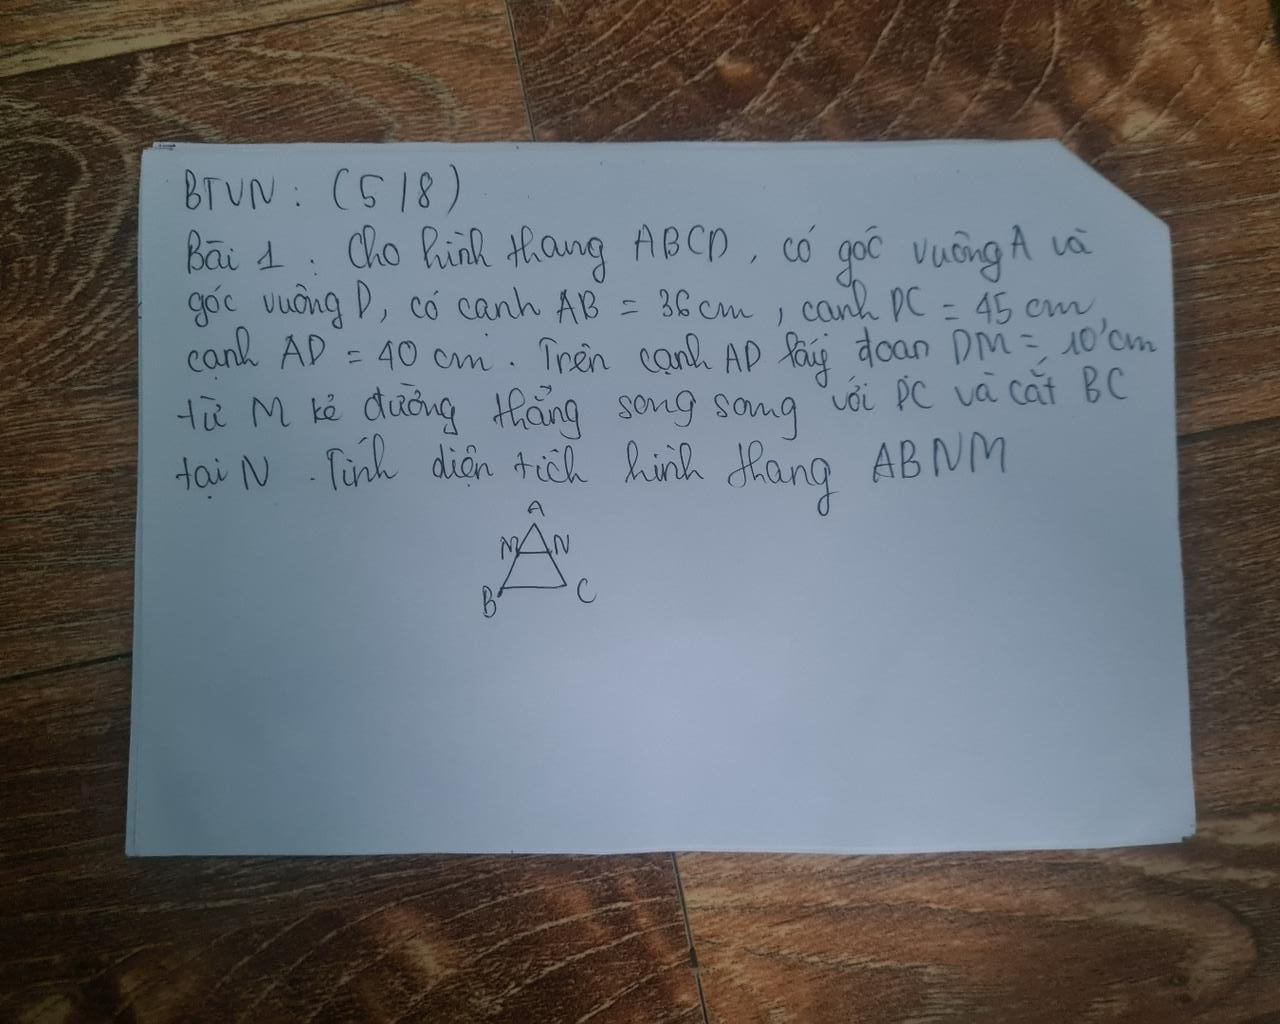 BTVN : (5/8)
Bài 1 : Cho hình thang ABCD , có góc vuông A và
góc vuông D, có cạnh AB = 36 cm , cạnh DC = 45 cm,
cạnh AD = 40 cm . Trên cạnh AD lấy đoạn DM = 10 cm
từ M kẻ đường thẳng song song với DC và cắt BC
tại N . Tính diện tích hình thang ABNM
A
M N
B C